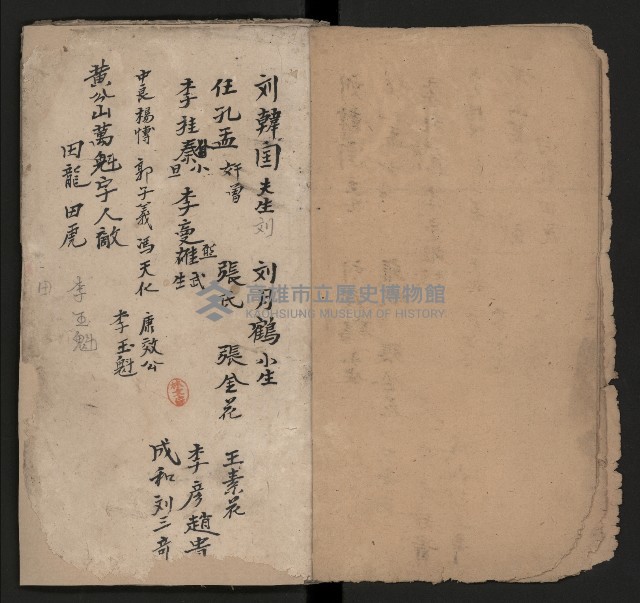 刘韓国 夫生 刘 刘月鶴 小生
任孔孟 奸 張氏 張全花 王素花
李桂秦 旦 小 李 雄 武生 李彦趙
中良楊博 郭子義 馮天化 康效公 成和 刘三奇
黄公山萬魁字人敵 李玉魁
田龍 田虎
李玉魁
田
高雄市立歷史博物館
KAOHSIUNG MUSEUM OF HISTORY